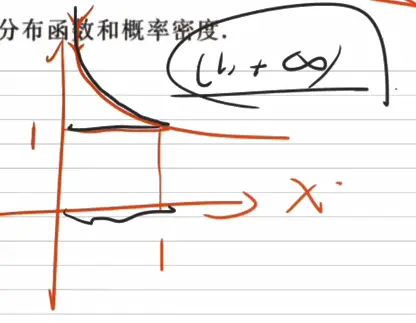 分布函数和概率密度.
(1, +∞)
1
X
1